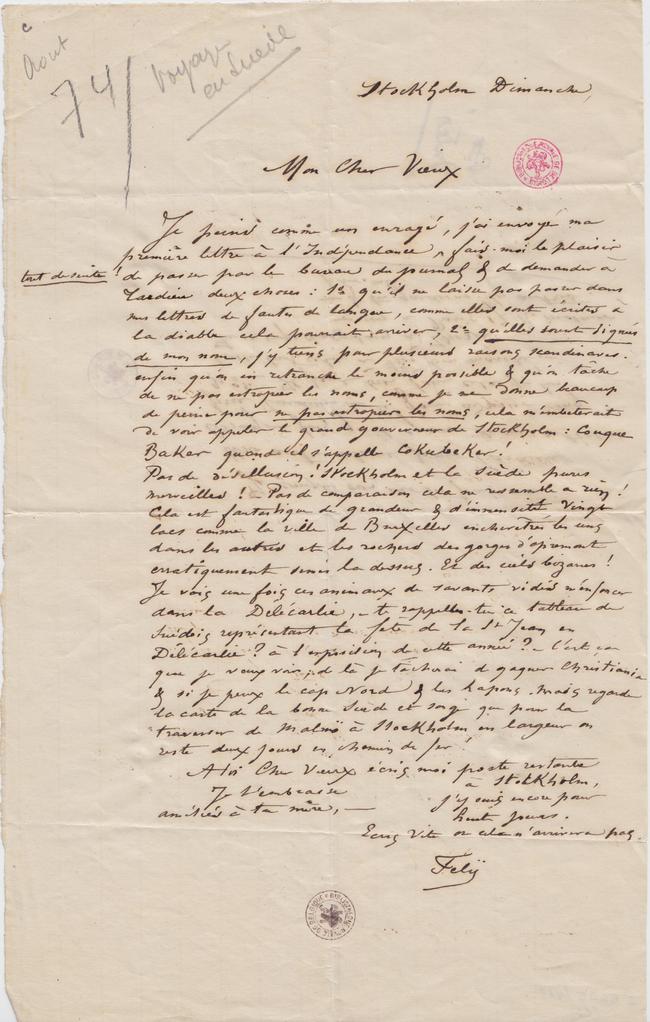 Aout
74
Voyage
en Suède
Stockholm Dimanche,
Mon Cher Vieux
Je peins comme un enragé, j'ai envoyé ma
première lettre à l'Indépendance, fais-moi le plaisir
tout de suite!
de passer par le bureau du journal & de demander à
Tardieu deux choses : 1º qu'il ne laisse pas passer dans
mes lettres de fautes de langue, comme elles sont écrites à
la diable cela pourrait arriver, 2º qu'elles soient signées
de mon nom, j'y tiens pour plusieurs raisons scandinaves.
enfin qu'on en retranche le moins possible & qu'on tâche
de ne pas estropier les noms, comme je me donne beaucoup
de peine pour ne pas estropier les noms, cela m'embêterait
de voir appeler le grand gouverneur de Stockholm : Couque
Baker quand il s'appelle
Pas de désillusion! Stockholm et la Suède pures
merveilles! - Pas de comparaison cela ne ressemble à rien!
Cela est fantastique de grandeur & d'immensité vingt
lacs comme la ville de Bruxelles enchevêtrés les uns
dans les autres et les rochers des gorges d'apremont
erratiquement semés là dessus. Et des ciels bizarres!
Je vais une fois ces animaux de savants vidés m'enfoncer
dans la Délécarlie, - te rappelles-tu ce tableau de
Suédois représentant la fête de la St Jean en
Délécarlie? à l'exposition de cette année? - C'est ça
que je veux voir, de là je tâcherai de gagner Christiania
& si je peux le cap Nord & les Lapons. mais regarde
la carte de la bonne Suède et songe que pour la
traverser de Malmö à Stockholm en largeur on
reste deux jours en chemin de fer!
A toi Cher Vieux écris moi poste restante
à Stockholm,
Je t'embrasse
j'y suis encore pour
amitiés à ta mère, -
huit jours.
Ecris vite ou cela n'arrivera pas.
Fély